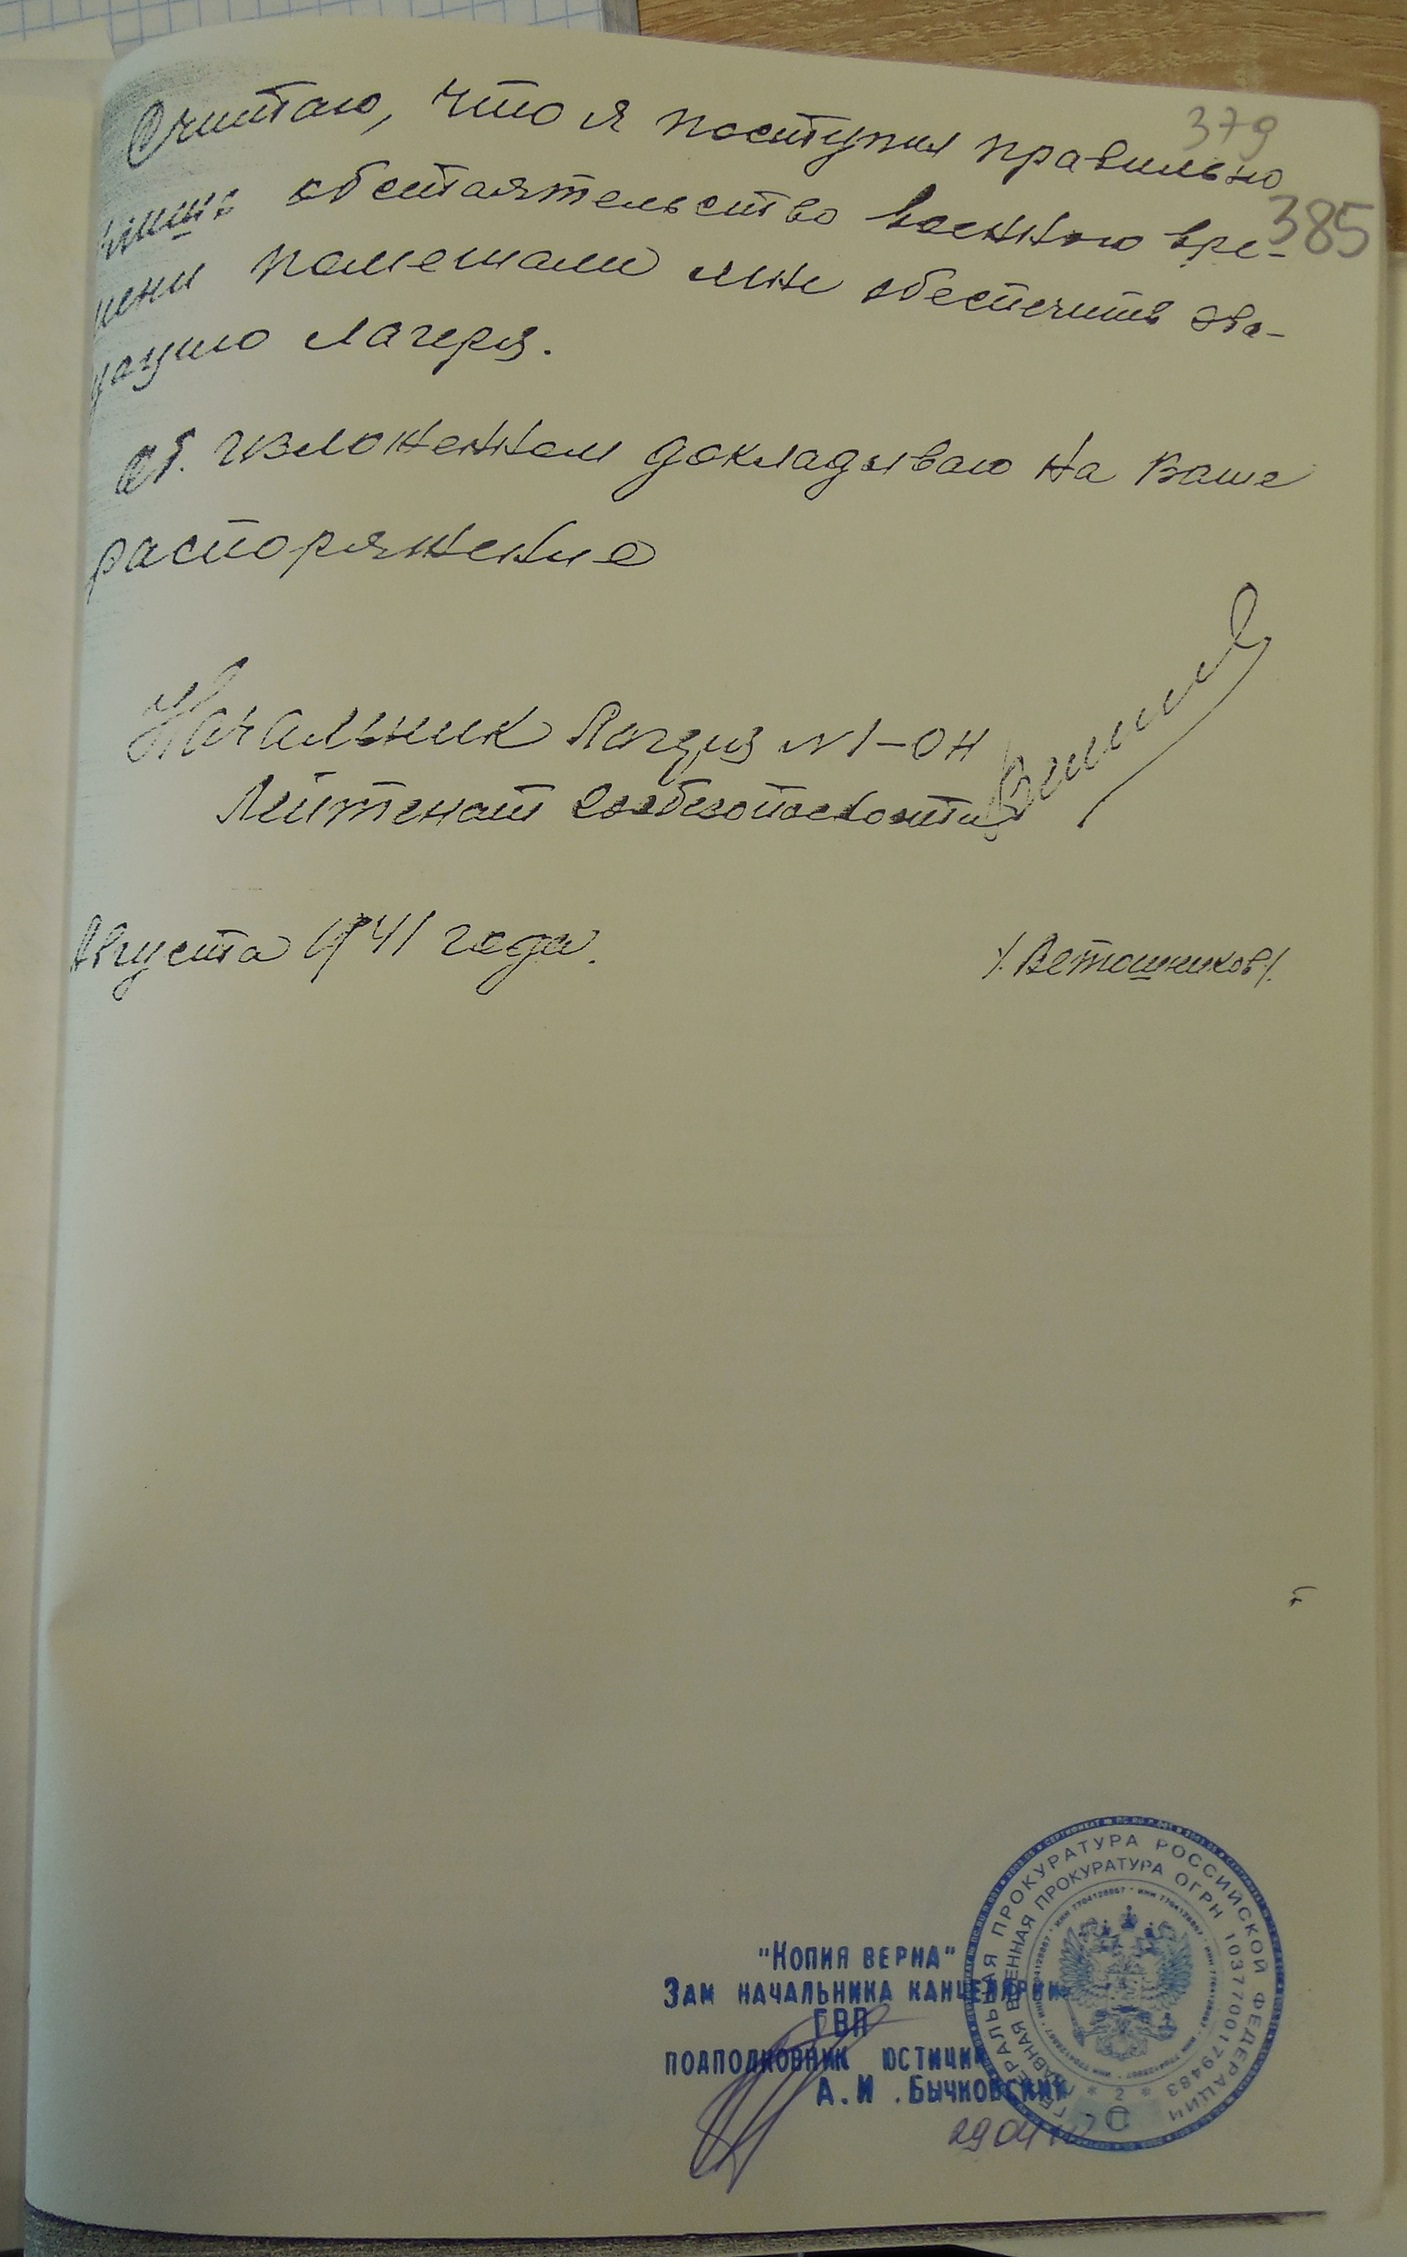 379
385
Считаю, что я поступил правильно
лишь обстаятельство военного вре-
мени помешали мне обеспечить эва-
куацию лагеря.
Об изложенном докладываю на Ваше
распоряжение
Начальник Лагеря N 1-ОН
Лейтенант Госбезопасности
Августа 1941 года.
/. Ветошников/.
"Копия верна"
Зам начальника канцелярии
ГВП
подполковник юстиции
А.И. Бычковский
ГЕНЕРАЛЬНАЯ ПРОКУРАТУРА РОССИЙСКОЙ ФЕДЕРАЦИИ
ГЛАВНАЯ ВОЕННАЯ ПРОКУРАТУРА ОГРН 1037700179483
ИНН 7704128067
* 2 *